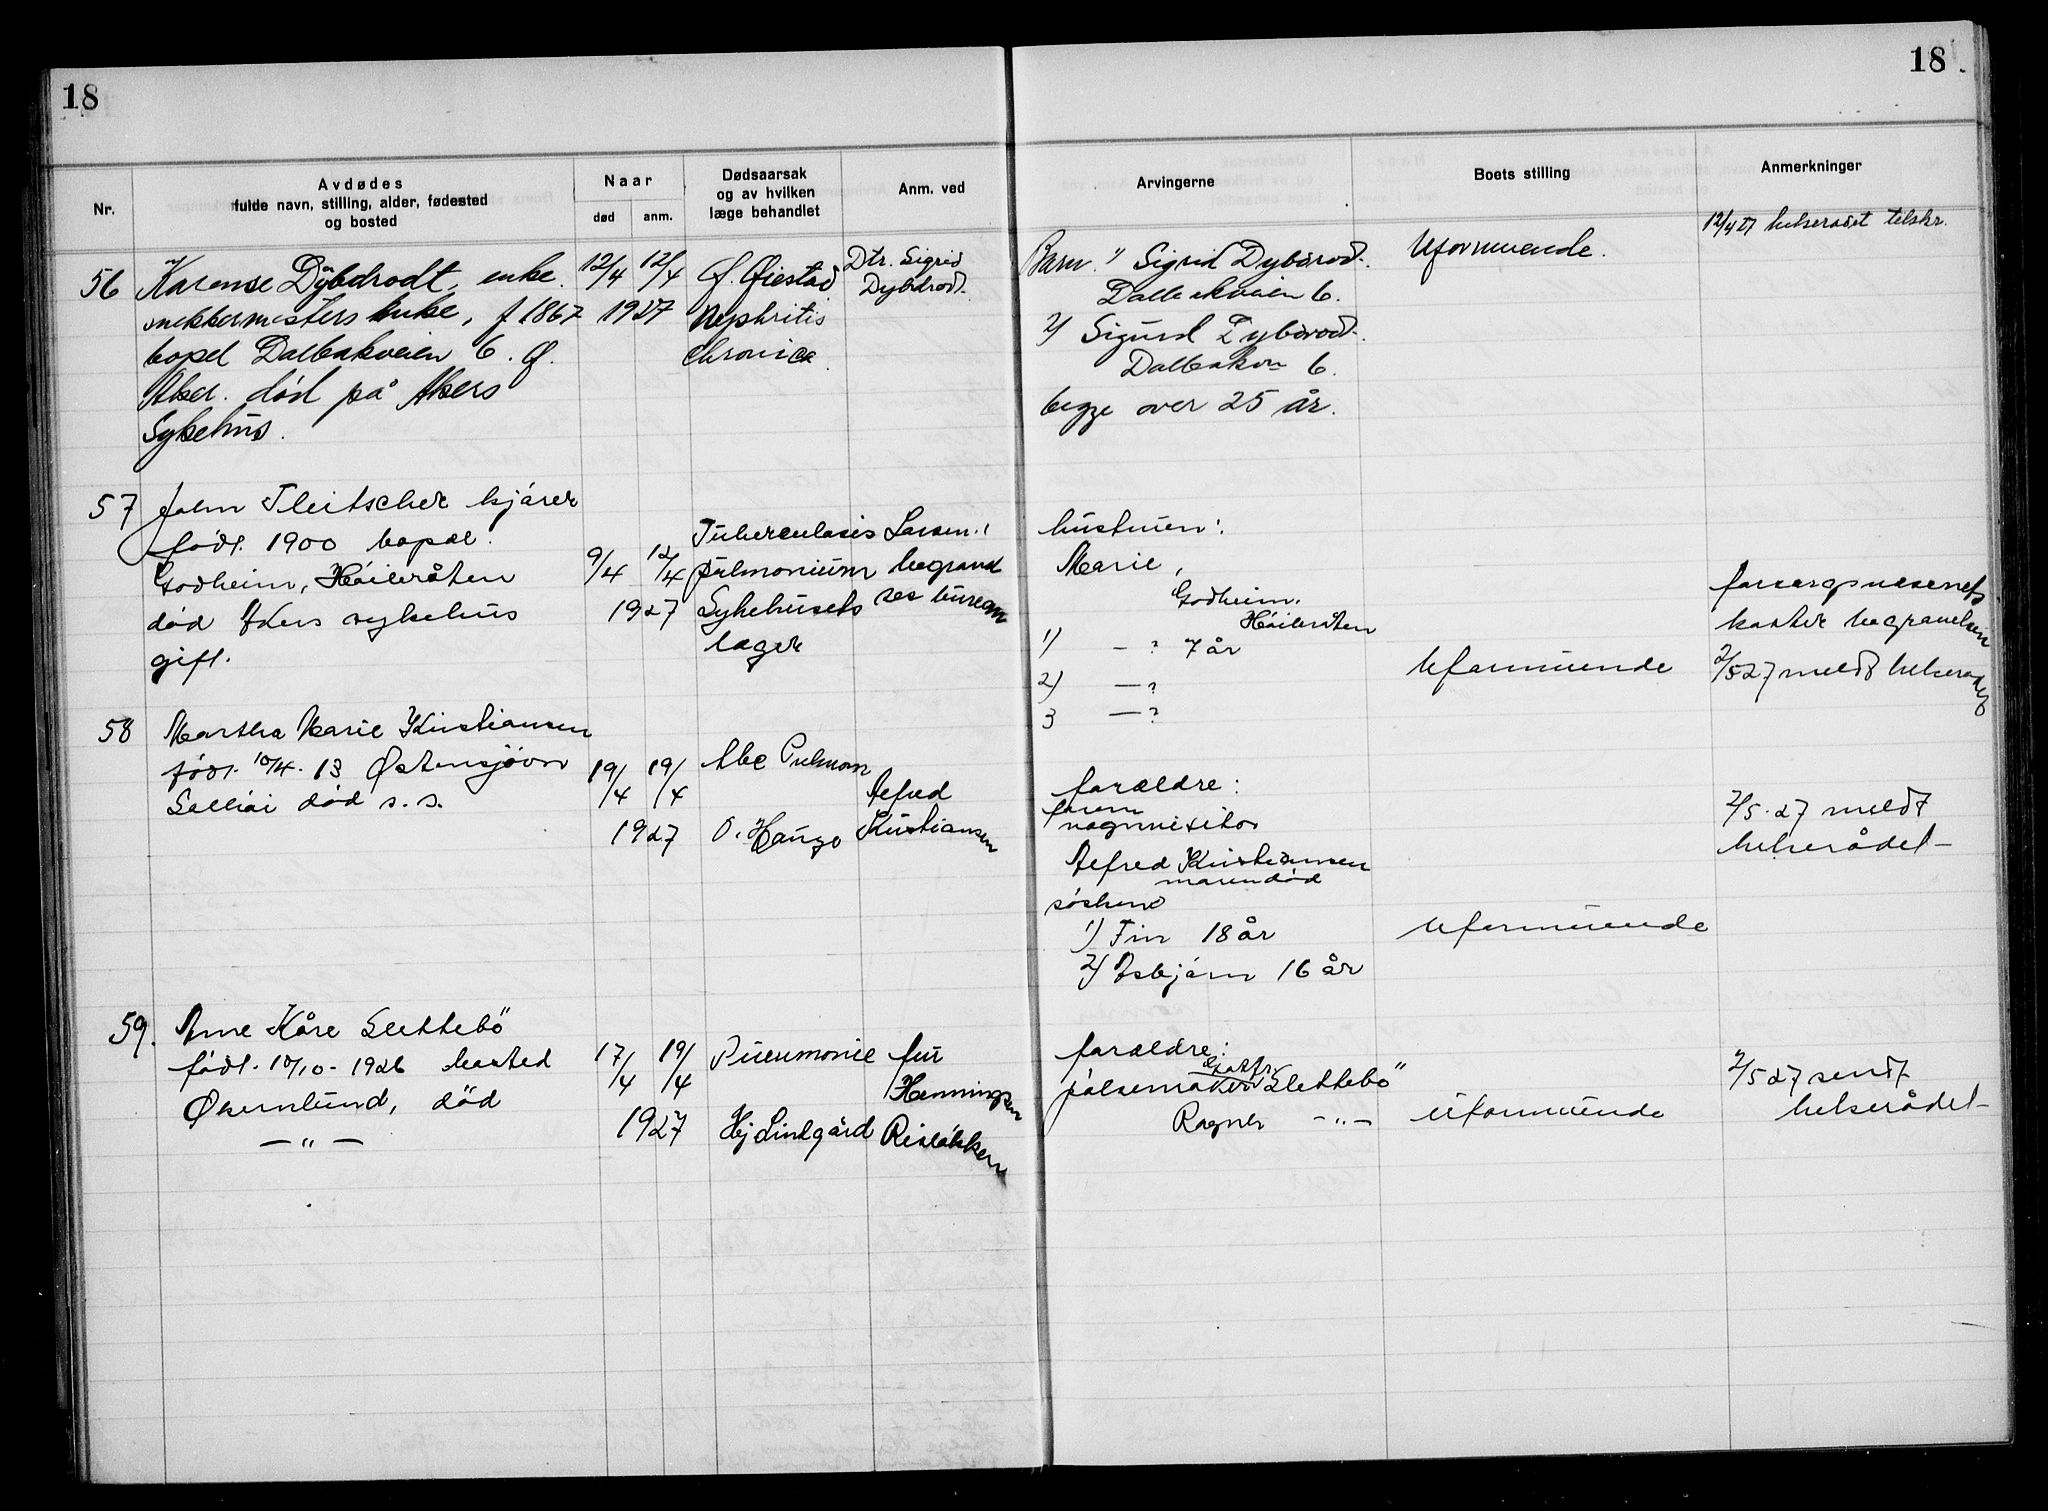 18
18
Nr.
Avdødes
fulde navn, stilling, alder, fødested
og bosted
Naar
død
anm.
Dødsaarsak
og av hvilken
læge behandlet
Anm. ved
Arvingerne
Boets stilling
Anmerkninger
56
Karense Dybdrodt, enke.
snekkermesters enke, f 1867
bopel Dalbakveien 6. Ø.
Aker. død på Akers
Sykehus.
12/4 12/4
1927
Ø. Øiestad
Nephritis
chronica
Dtr. Sigrid
Dybdrodt
Barn. 1) Sigrid Dybdrodt.
Dalbakveien 6.
2) Sigurd Dybdrodt.
Dalbakvn 6.
begge over 25 år.
Uformuende.
12/4 27 helserådet tilskr.
57
John Fleitscher kjører
født. 1900 bopæl.
Godheim, Høibråten
død Akers sykehus
gift.
9/4 12/4
1927
Tuberculosis
pulmonium
Sykehusets
læger
Larsen's
begravel
ses bureau
hustruen:
Marie,
Godheim,
Høibråten
1) — ? 7 år
2) — ?
3 — ?
Uformuende
forsorgsvesenet
koster begravelsen
2/5 27 meldt helserådet
58
Martha Marie Kristiansen
født. 10/4. 13 Østensjøvn
død s. s.
19/4 19/4
1927
Tbc Pulmon
O. Hauge
Alfred
Kristiansen
forældre:
faren
vognvisitør
Alfred Kristiansen
moren død
søsken
1) Fin 18 år
2) Asbjørn 16 år
Uformuende
2/5. 27 meldt
helserådet —
59.
Arne Kåre Slettebö
født. 10/10 - 1926 bosted
Økernlund, død
— " —
17/4 19/4
1927
Pneumonie
Hj Lindgård
fru
Henningsen
Risløkken
forældre:
pølsemaker Slettebö
Ragner — " —
Uformuende
2/5 27 sendt
helserådet —